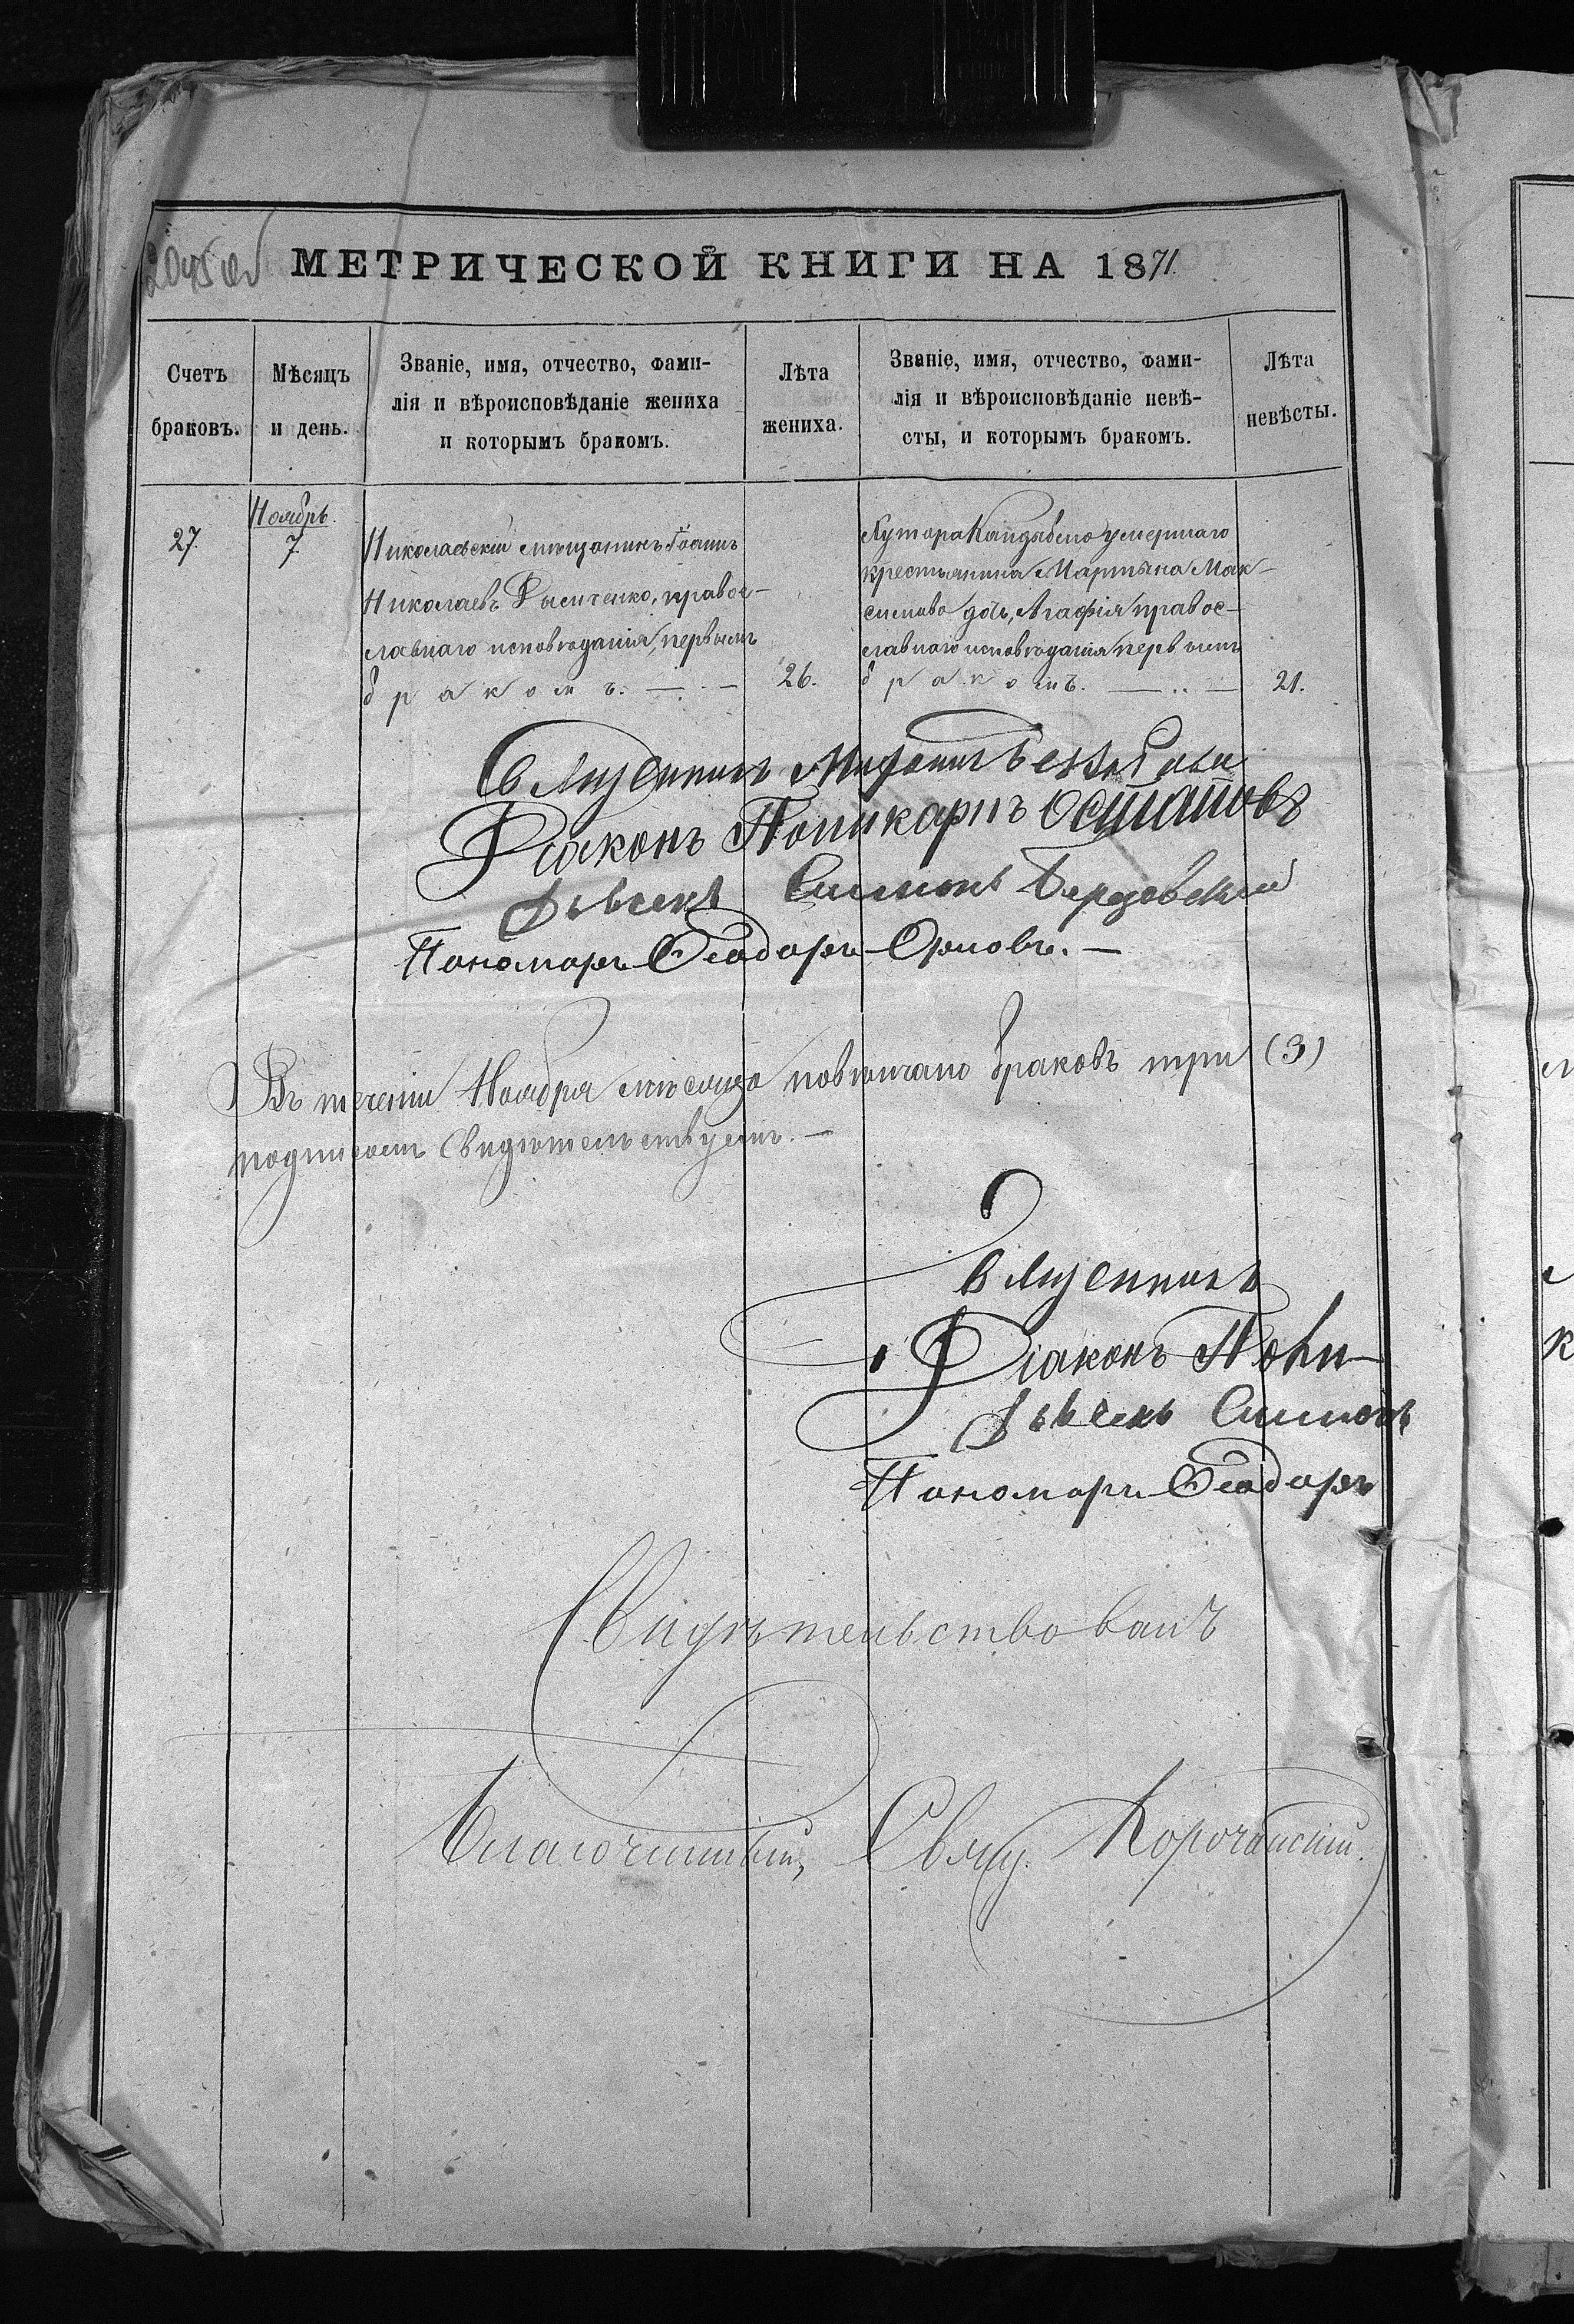 МЕТРИЧЕСКОЙ КНИГИ НА 1871
Счетъ браковъ.
Мѣсяцъ и день.
Званіе, имя, отчество, фами-
лія и вѣроисповѣданіе жениха
и которымъ бракомъ.
Лѣта жениха.
Званіе, имя, отчество, фами-
лія и вѣроисповѣданіе невѣ-
сты, и которымъ бракомъ.
Лѣта невѣсты.
27.
Ноябрь.
7.
Николаевскій мѣщанинъ Іоаннъ
Николаевъ, правос-
лавнаго исповѣданія, первымъ
бракомъ. —
26.
Хутора Кандыбино умершаго
крестьянина Мартына Мак-
симова дочь, Агафія правос-
лавнаго исповѣданія первымъ
бракомъ. —
21.
Священникъ
Діаконъ Поликарпъ Остаповъ
Дьячекъ Симонъ Березовскій
Пономарь Ѳеодоръ Орловъ. —
Въ теченіи Ноября мѣсяца повѣнчано браковъ три (3)
подписомъ свидѣтельствуемъ. —
Священникъ
Діаконъ Поли-
Дьячекъ Симонъ
Пономарь Ѳеодоръ
Свидѣтельствовалъ
Благочинный, Свящ. Корочанскій.